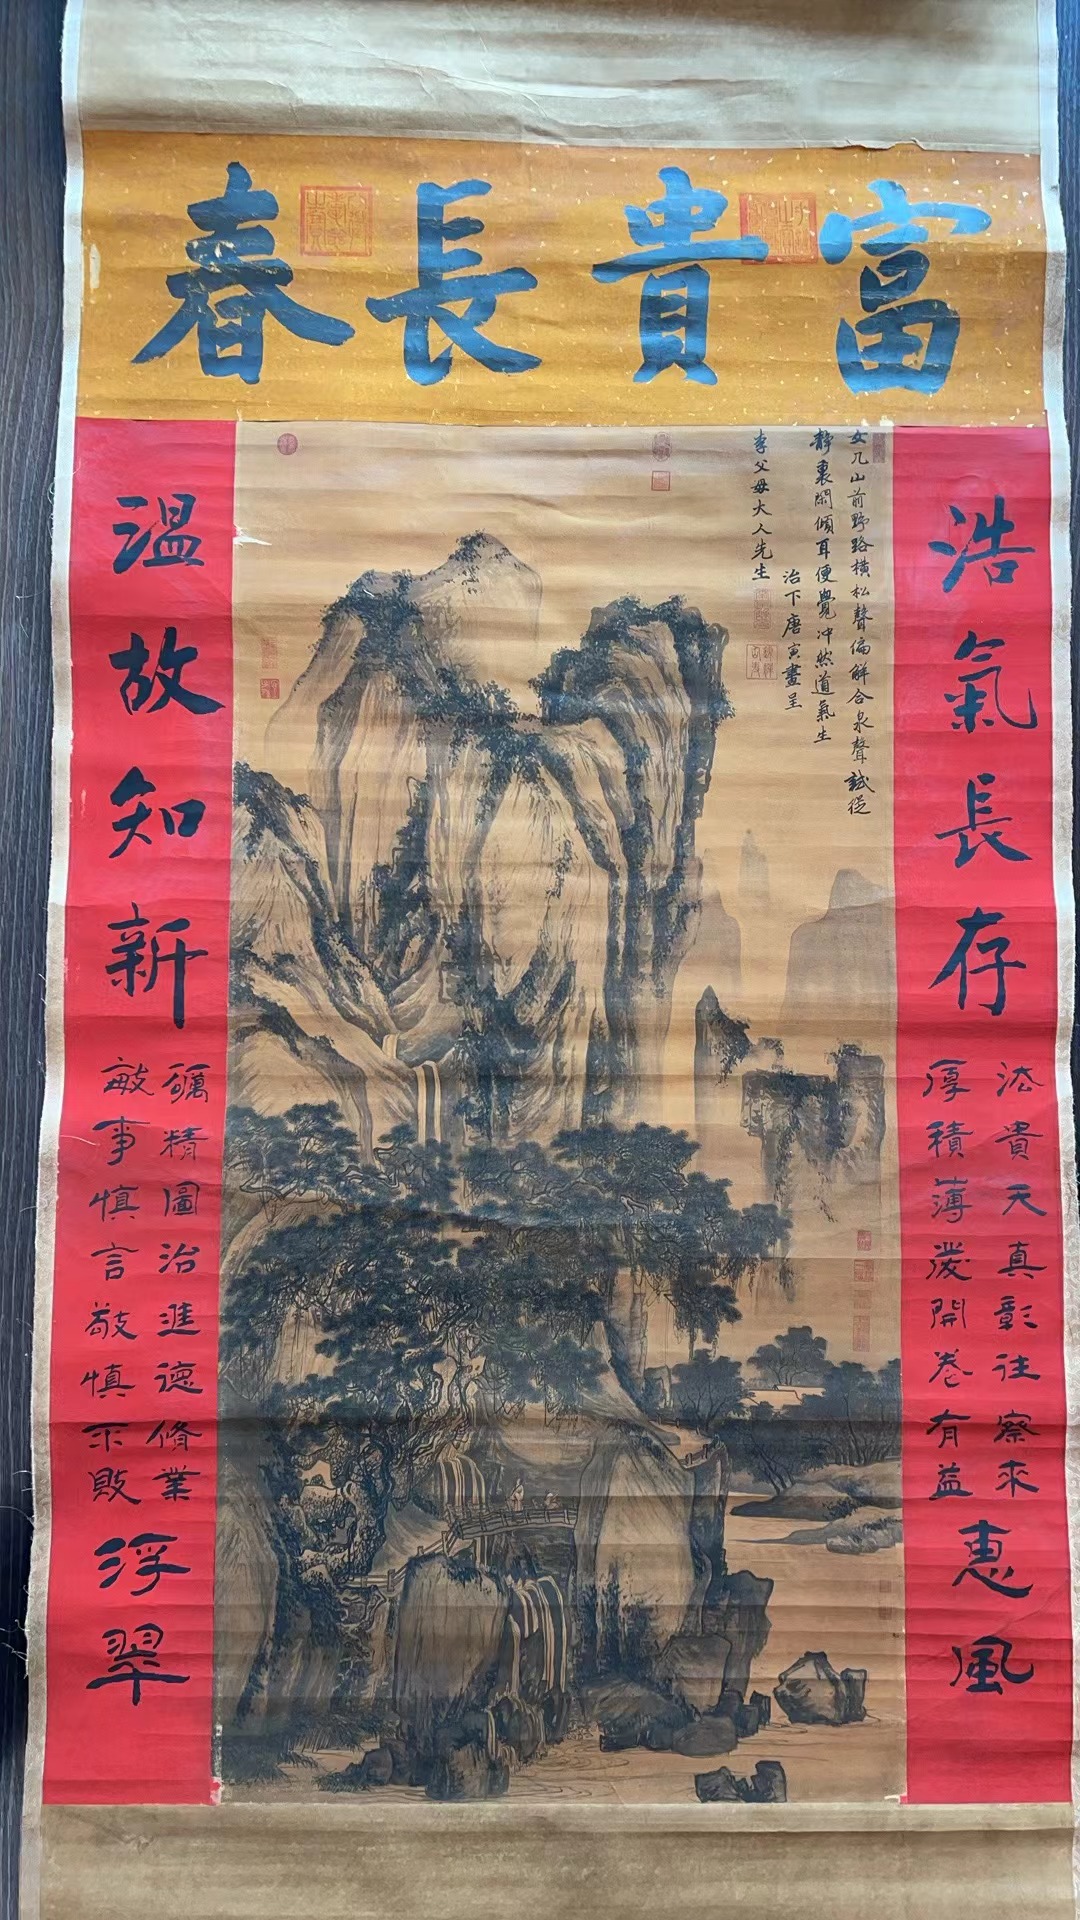 富貴長春
浩氣長存
法貴天真彰往察來
厚積薄發開卷有益
惠風
女几山前野路橫松聲偏解合泉聲試從
靜裏閑傾耳便覺冲然道氣生
治下唐寅畫呈
李父母大人先生
溫故知新
礪精圖治進德脩業
敏事慎言敬慎不敗
浮翠